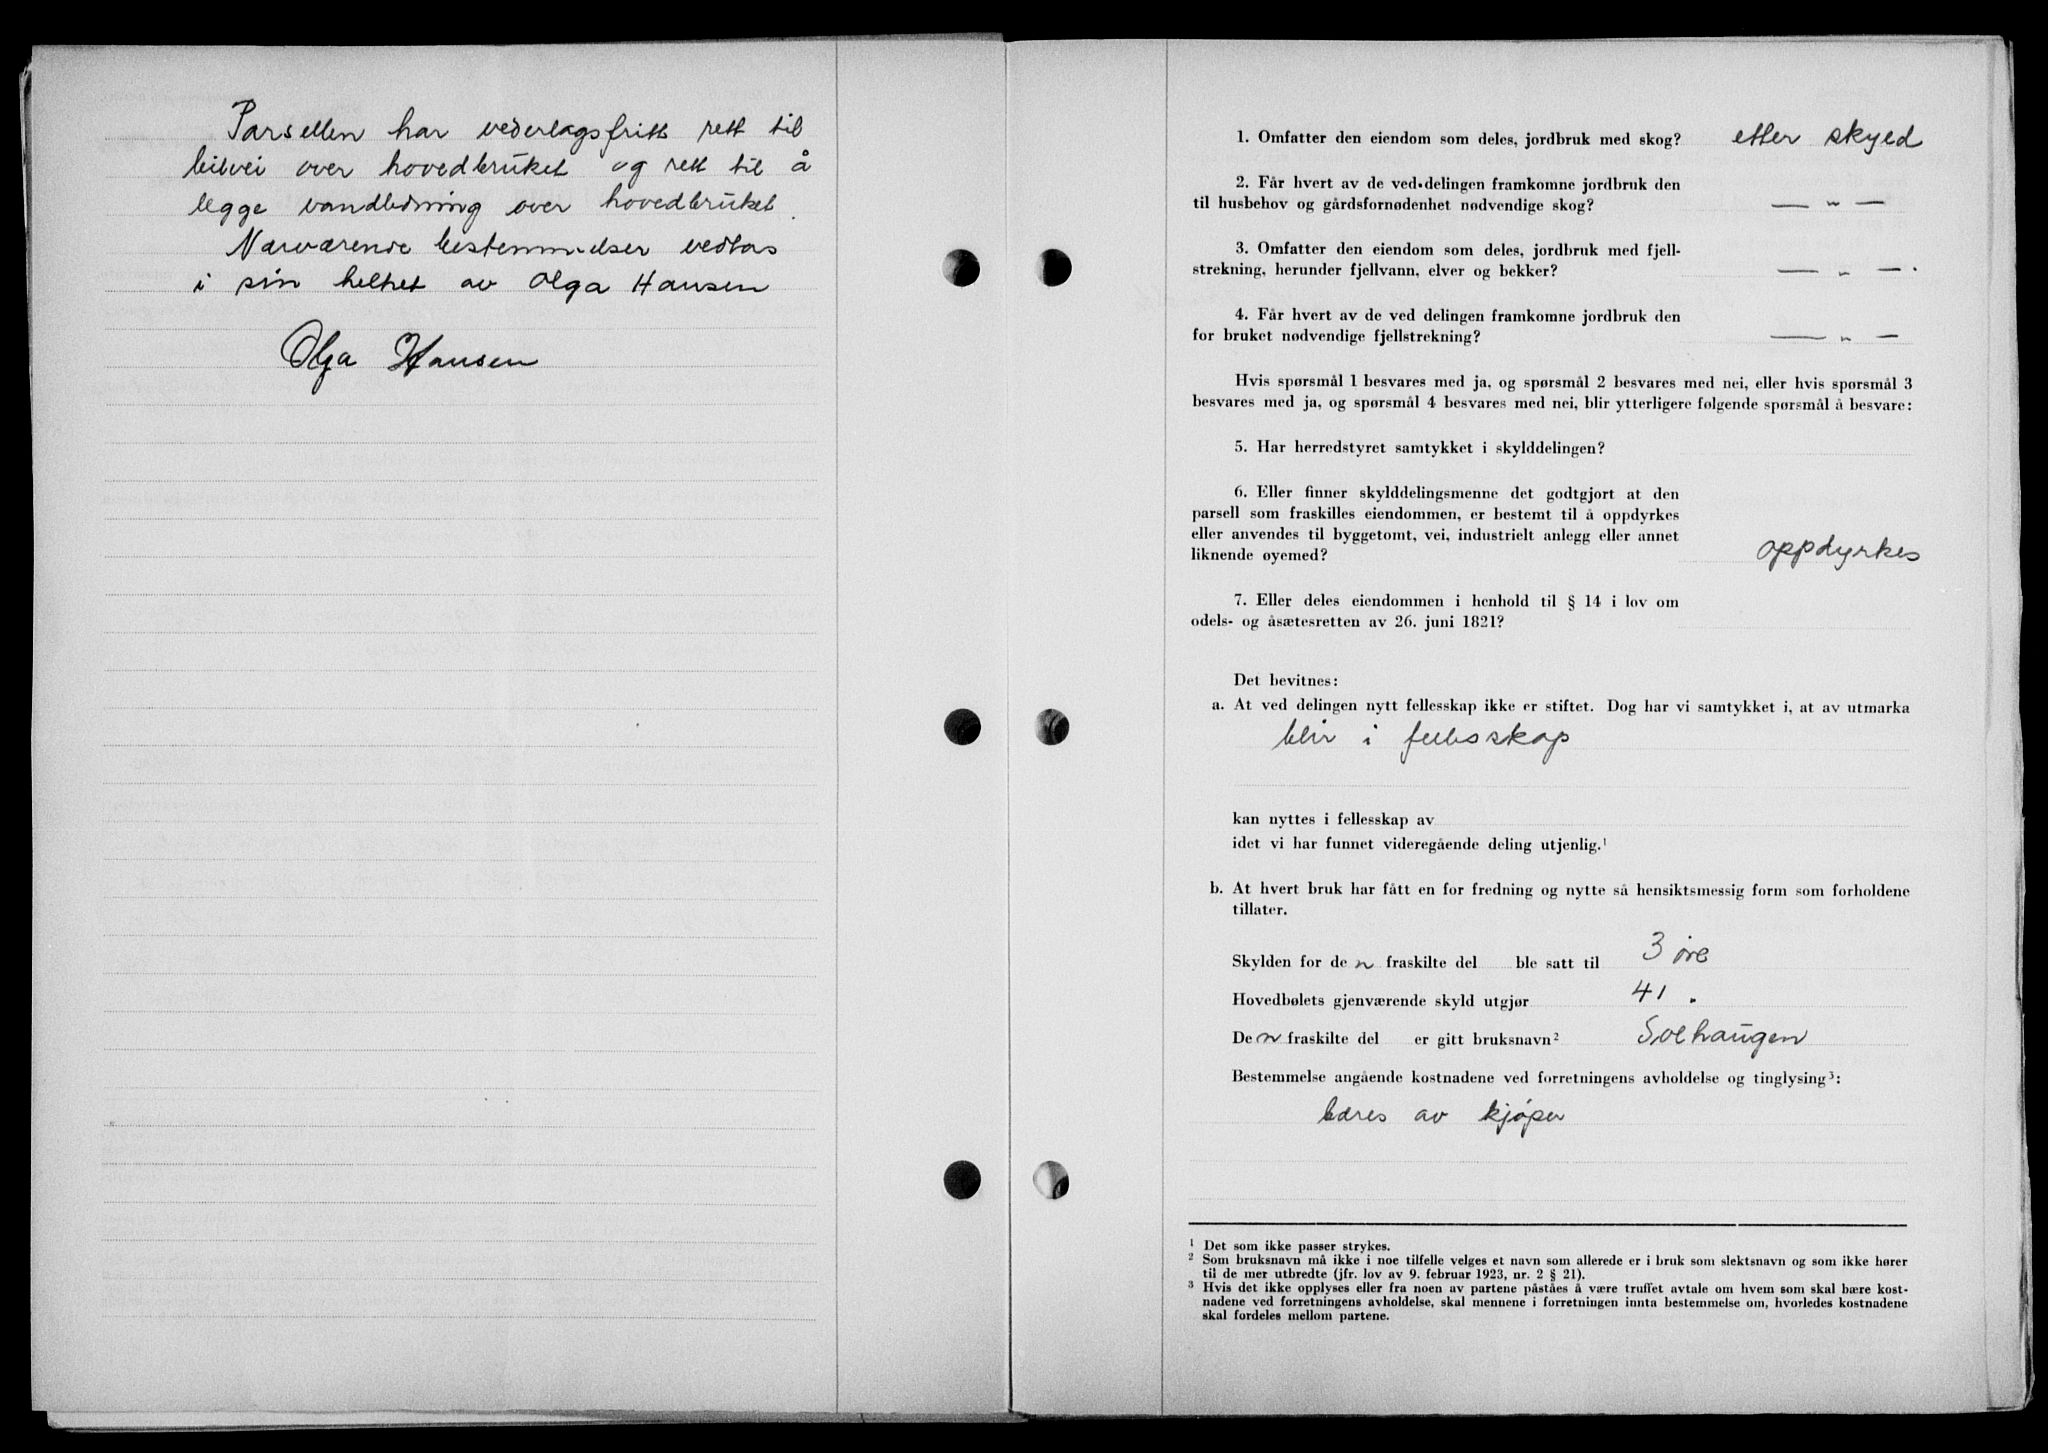 Parsellen har vederlagsfritt rett til
bilvei over hovedbruket og rett til å
legge vandledning over hovedbruket.
Nærværende bestemmelser vedtas
i sin helhet av Olga Hansen
Olga Hansen
1. Omfatter den eiendom som deles, jordbruk med skog? etter skyld
2. Får hvert av de ved delingen framkomne jordbruk den
til husbehov og gårdsfornødenhet nødvendige skog? — " —
3. Omfatter den eiendom som deles, jordbruk med fjell-
strekning, herunder fjellvann, elver og bekker? — " —.
4. Får hvert av de ved delingen framkomne jordbruk den
for bruket nødvendige fjellstrekning? — " —
Hvis spørsmål 1 besvares med ja, og spørsmål 2 besvares med nei, eller hvis spørsmål 3
besvares med ja, og spørsmål 4 besvares med nei, blir ytterligere følgende spørsmål å besvare:
5. Har herredstyret samtykket i skylddelingen?
6. Eller finner skylddelingsmenne det godtgjort at den
parsell som fraskilles eiendommen, er bestemt til å oppdyrkes
eller anvendes til byggetomt, vei, industrielt anlegg eller annet
liknende øyemed? oppdyrkes
7. Eller deles eiendommen i henhold til § 14 i lov om
odels- og åsætesretten av 26. juni 1821?
Det bevitnes:
a. At ved delingen nytt fellesskap ikke er stiftet. Dog har vi samtykket i, at av utmarka
blir i fellesskap
kan nyttes i fellesskap av
idet vi har funnet videregående deling utjenlig.¹
b. At hvert bruk har fått en for fredning og nytte så hensiktsmessig form som forholdene
tillater.
Skylden for de n fraskilte del ble satt til 3 øre
Hovedbølets gjenværende skyld utgjør 41 "
De n fraskilte del er gitt bruksnavn² Solhaugen
Bestemmelse angående kostnadene ved forretningens avholdelse og tinglysing³:
bæres av kjøper
¹ Det som ikke passer strykes.
² Som bruksnavn må ikke i noe tilfelle velges et navn som allerede er i bruk som slektsnavn og som ikke hører
til de mer utbredte (jfr. lov av 9. februar 1923, nr. 2 § 21).
³ Hvis det ikke opplyses eller fra noen av partene påståes å være truffet avtale om hvem som skal bære kost-
nadene ved forretningens avholdelse, skal mennene i forretningen innta bestemmelse om, hvorledes kostnadene
skal fordeles mellom partene.